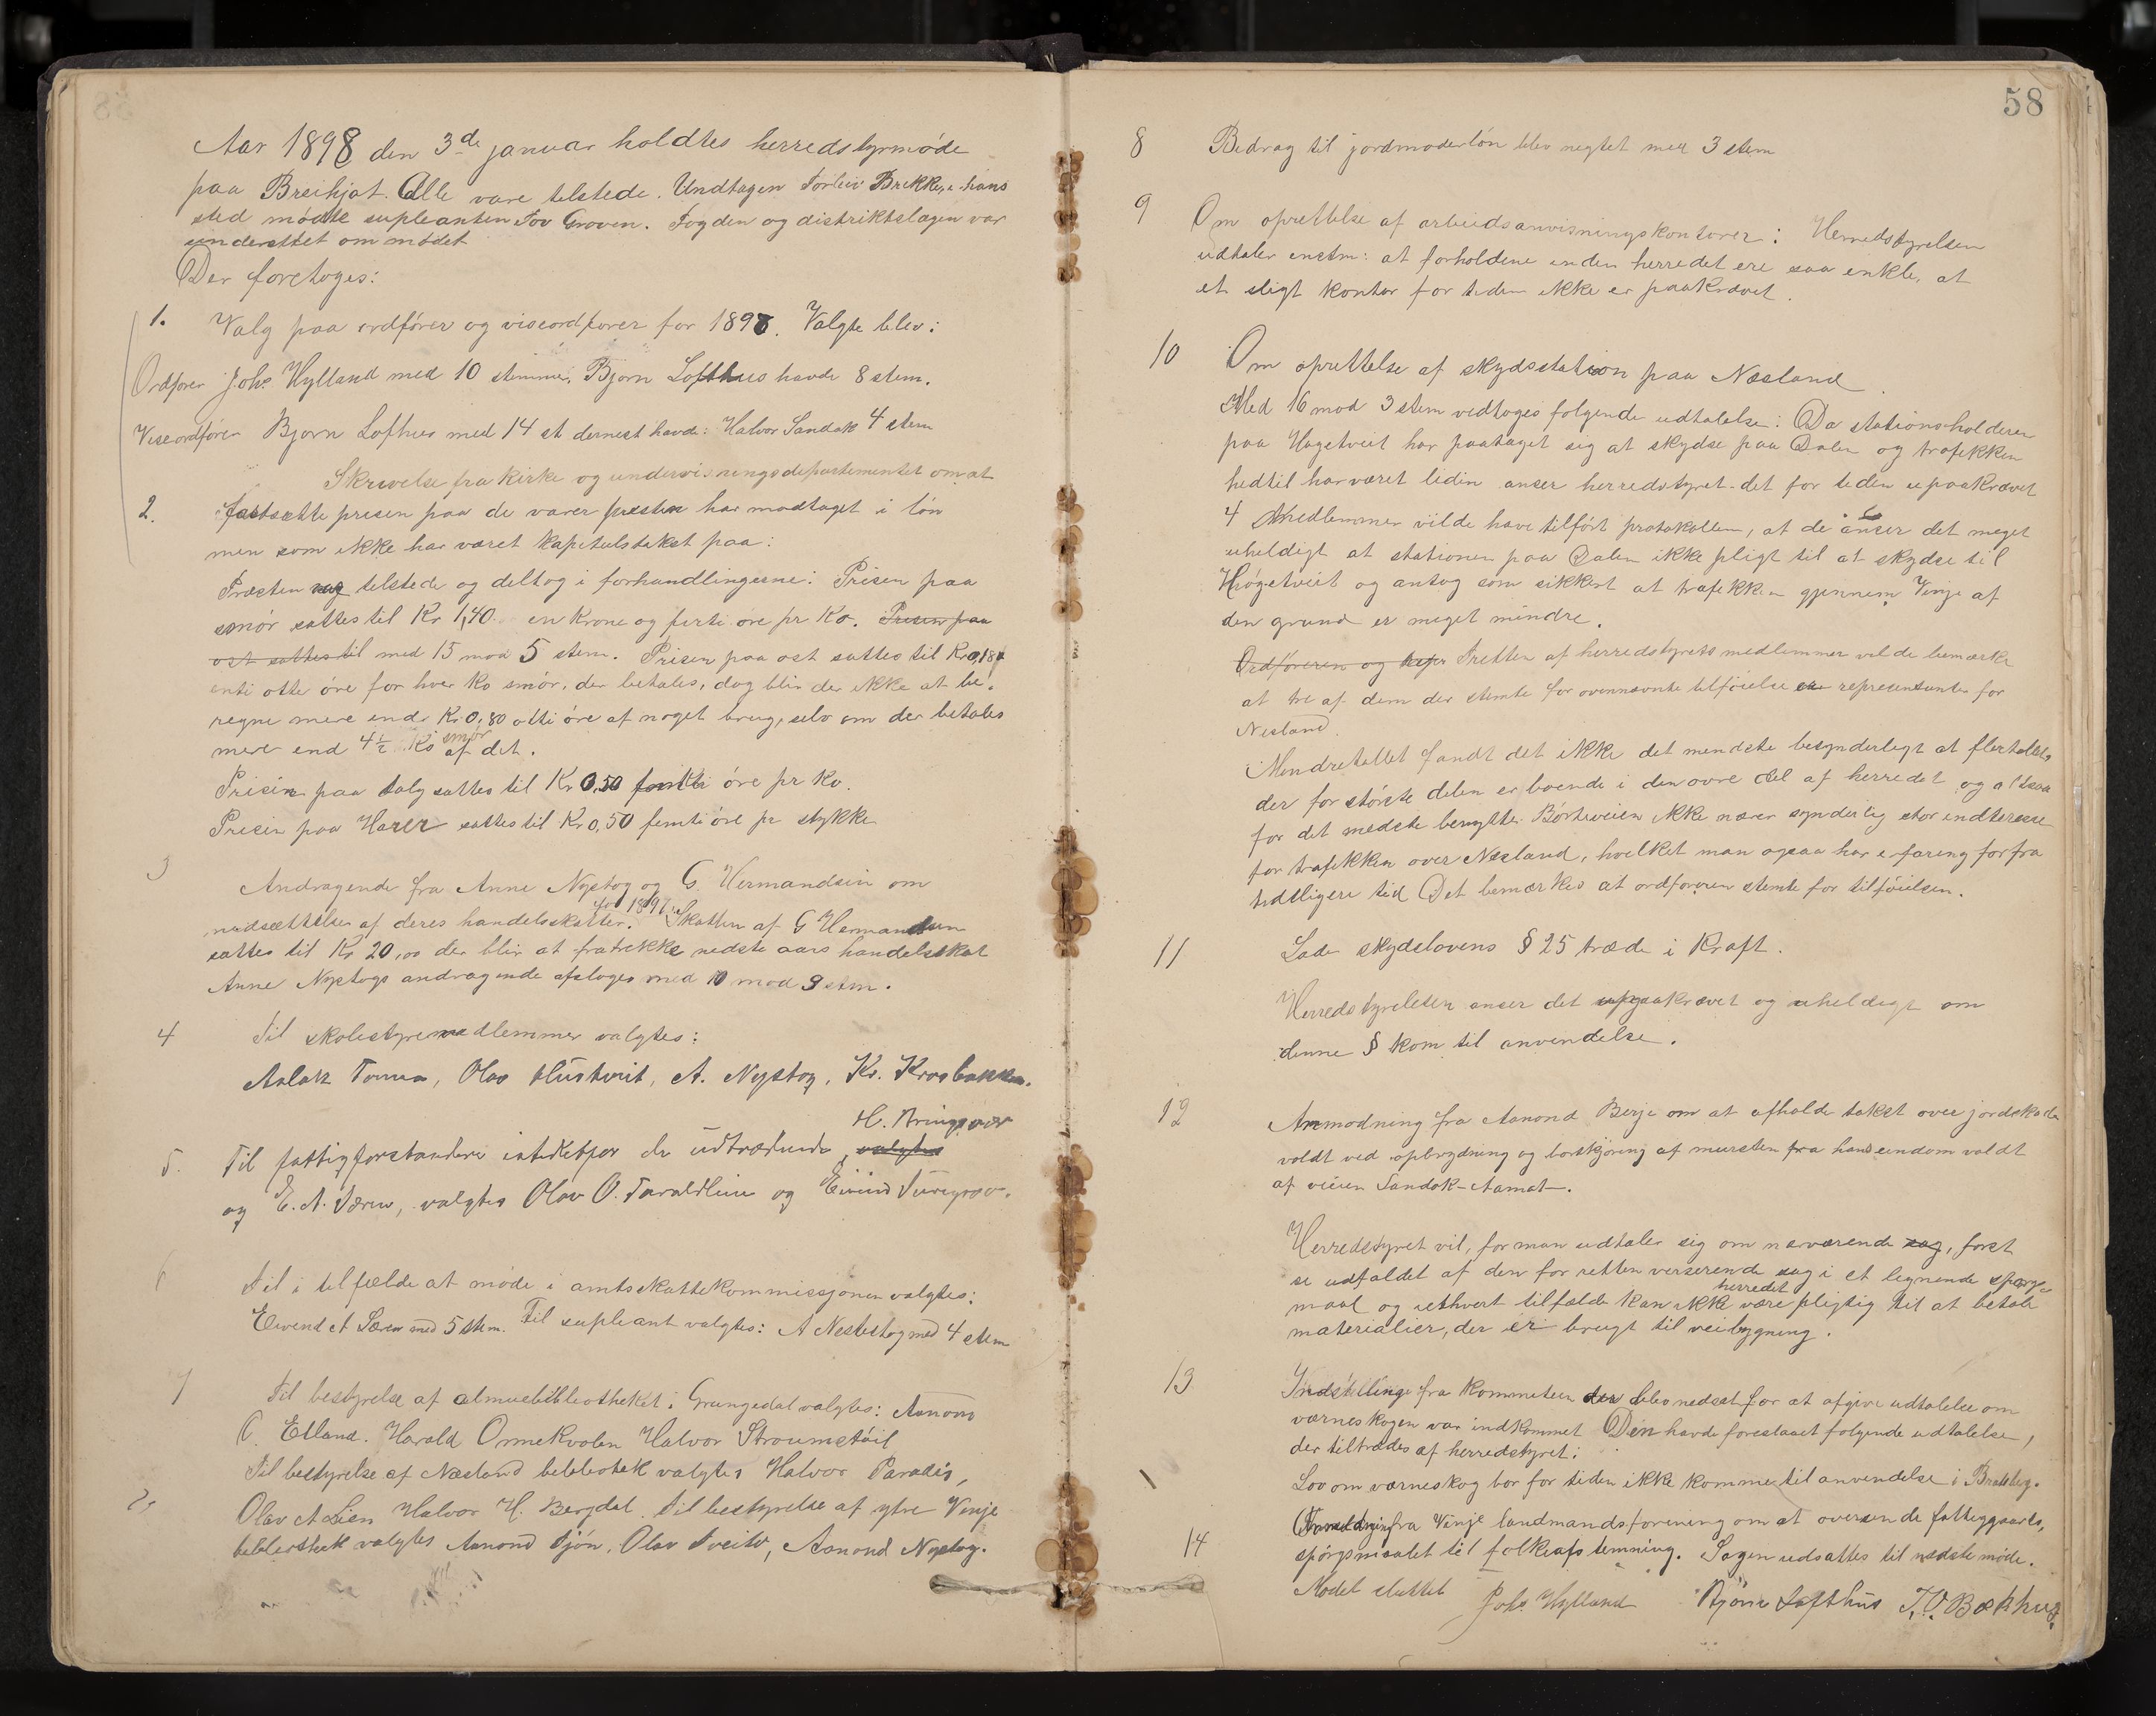 Aar 1898 den 3de januar holdtes herredstyrmøde
paa Breihjat. Alle vare telstede. Undtagen Torleiv Brekke, i hans
sted mødte supleanten Tov Groven. Fogden og distriktslægen var
underettet om mødet
Der foretoges:
1. Valg paa ordfører og viseordfører for 1898. Valgte blev:
Ordfører Johs Hylland med 10 stemmer. Bjørn Lofthus havde 8 stem.
Viseordfører Bjørn Lofthus med 14 st dernest havde: Halvor Sandok 4 stem
Skrivelse fra kirke og undervisningsdepartementet om at
2. fastsætte prisen paa de varer presten har modtaget i løn
men som ikke har været kapitulstakst paa:
Præsten var telstede og deltog i forhandlingerne: Prisen paa
smør sattes til Kr 1,40 en krone og førti øre pr Ko. Prisen paa
ost sattes til med 15 mod 5 stem. Prisen paa ost sattes til Kr 0,18
otte øre for hver Ko smør, der betales, dog blir der ikke at be-
regne mere end Kr 0,80 otti øre af noget brug, selv om der betales
mere end 4½ Ko smør af det.
Prisen paa talg sattes til Kr 0,50 femti øre pr Ko.
Prisen paa Harer sattes til Kr 0,50 femti øre pr stykke
3 Andragende fra Anne Nystog og G. Hermandsen om
nedsættelse af deres handelsskatter for 1897. Skatten af G Hermandsen
sattes til Kr 20,00 der blir at fratrekke nedste aars handelsskat
Anne Nystogs andragende afsloges med 10 mod 9 stem.
4 Til skolestyremedlemmer valgtes:
Aslak Torven, Olav Hustveit, A. Nystog, Kr. Krosbakken.
H. Bringsver
5. Til fattigforstandere istedetfor de udtrædende, valgtes
og E. A. Særen, valgtes Olav O. Taraldlien og Eivind Turegrov.
6 Til i tilfælde at møde i amtsskattekommissjonen valgtes:
Eivend A Særen med 5 stem. Til supleant valgtes: A Nestestog med 4 stem
7 Til bestyrelse af almuebibliotheket i Grungedal valgtes: Aamon
O. Edland. Harald Ormekvolen Halvor Straumstøil
Til bestyrelse af Næsland bebliotek valgtes Halvor Paradis,
Olav A Lien Halvor H. Bergdal. til bestyrelse af ytre Vinje
bebliothek valgtes Aamond Tjøn, Olav Tveito, Aamond Nystog.
58
8 Bedrag til jordmoderløn blev negtet med 3 stem
9 Om oprettelse af arbeidsanvisningskontorer: Herredstyrelsen
udtaler enstm: at forholdene inden herredet ere saa enkle, at
et sligt kontor for tiden ikke er paakrævet.
10 Om oprettelse af skydsstation paa Næsland
Med 16 mod 3 stem vedtoges følgende udtalelse: Da stationsholderen
paa Høgetveit har paataget sig at skydse paa Dalen og trafikken
hedtil har været liden anser herredstyret det for tiden upaakrævet
4 Medlemmer vilde have tilført protokollen, at de anser det meget
uheldigt at stationen paa Dalen ikke pligt til at skydse til
Høgetveit og antog som sikkert at trafikken gjennem Vinje af
den grund er meget mindre.
Ordføreren og Tretten af herredstyrets medlemmer vilde bemærke
at tre af dem der stemte for ovennævnte tilføielse er representanter for
Nesland.
Mindretallet fandt det ikke det mendste besynderlegt at flertallet,
der for største delen er boende i den øvre del af herredet og altsaa
for det medste benytter Børteveien ikke nærer synderlig stor indteresse
for trafikken over Næsland, hvilket man ogsaa har erfaring for fra
tidligere tid Det bemærkes at ordføreren stemte for tilføielsen.
11 Lade skydslovens § 25 træde i Kraft.
Herredstyrelsen anser det upaakrævet og uheldigt om
denne § kom til anvendelse.
12 Anmodning fra Aanond Berje om at afholde takst over jordskade
voldt ved opbrydning og bortkjøring af mursten fra hans eindom voldt
af veien Sandok-Aamot.
Herredstyret vil, før man udtaler sig om nærværende sag, først
se udfaldet af den for retten verserende sag i et lignende spørgs-
maal og iethvert tilfælde kan ikke herredet være pligtig til at betale
materialier, der er brugt til veibygning.
13 Indstilling fra kommeteen der blev nedsat for at afgive udtalelse om
værneskogen var indkommet Den havde foreslaaet følgende udtalelse,
der tiltrædes af herredstyret:
Lov om værneskog bør for tiden ikke komme til anvendelse i Bratsberg.
14 fra Vinje landmandsforening om at oversende fatteggaards,
spørgsmaalet til folkeafstemning. Sagen udsattes til nedste møde.
Mødet sluttet Johs. Hylland Bjørn Lofthus T. O. Bækhus